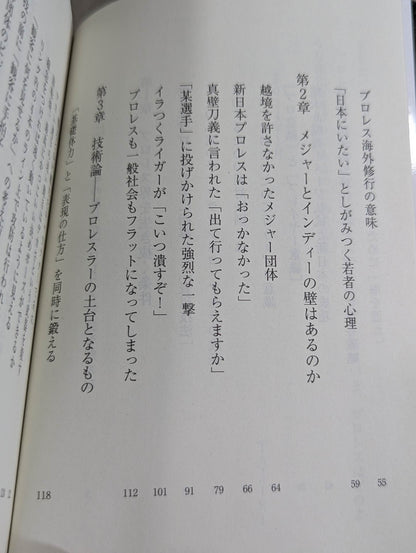 プロレス海外修行の意味 55
「日本にいたい」としがみつく若者の心理 59
第2章 メジャーとインディーの壁はあるのか
越境を許さなかったメジャー団体 64
新日本プロレスは「おっかなかった」 66
真壁刀義に言われた「出て行ってもらえますか」 79
「某選手」に投げかけられた強烈な一撃 91
イラつくライガーが「こいつ潰すぞ!」 101
プロレスも一般社会もフラットになってしまった 112
第3章 技術論――プロレスラーの土台となるもの
「基礎体力」と「表現の仕方」を同時に鍛える 118